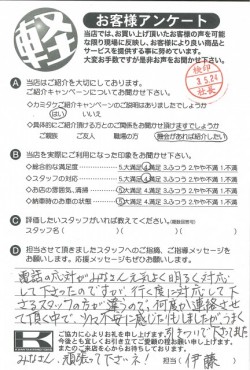 軽
お客様アンケート
当店では、お買い上げ頂いたお客様の声を可能
な限り現場に反映し、お客様により良い商品と
サービスを提供する事に努めています。
大変お手数ですが是非お声をお聞かせ下さい。
検印
3.5.24
社長
A 当店はご紹介を大切にしております。
ご紹介キャンペーンについてお聞かせ下さい。
◇カミタケご紹介キャンペーンご説明はありましたでしょうか
はい いいえ
◇具体的にご紹介頂ける方とのご関係をお聞かせ頂けますでしょうか
ご親族 ご友人 職場の方 機会があれば紹介したい
B 当店を実際にご利用になった印象をお聞かせ下さい。
◇総合的な満足度 5.大満足 4.満足 3.ふつう 2.やや不満 1.不満
◇スタッフの対応 5.大満足 4.満足 3.ふつう 2.やや不満 1.不満
◇お店の雰囲気、清潔 5.大満足 4.満足 3.ふつう 2.やや不満 1.不満
◇納車時のお車の状態 5.大満足 4.満足 3.ふつう 2.やや不満 1.不満
C 評価したいスタッフがいれば教えてください。
スタッフ名( )( )( )
D 担当させて頂きましたスタッフへのご指摘、ご指導メッセージを
お願いします。応援メッセージもぜひお願いします。
電話の応対がみなさん元気よく明るく対応
して下さったのですが、行く度に対応して下
さるスタッフの方が違うので、何度か連絡させ
て頂く中で、少し不安に感じた
下さいました
みなさん、頑張って下さいネ!
ご協力に心よりお礼を申し上げます。
今後とも宜しくお引き立てご愛顧の程お願い申し上げます。
またのご来店を心からお待ちしております。
担当 伊藤